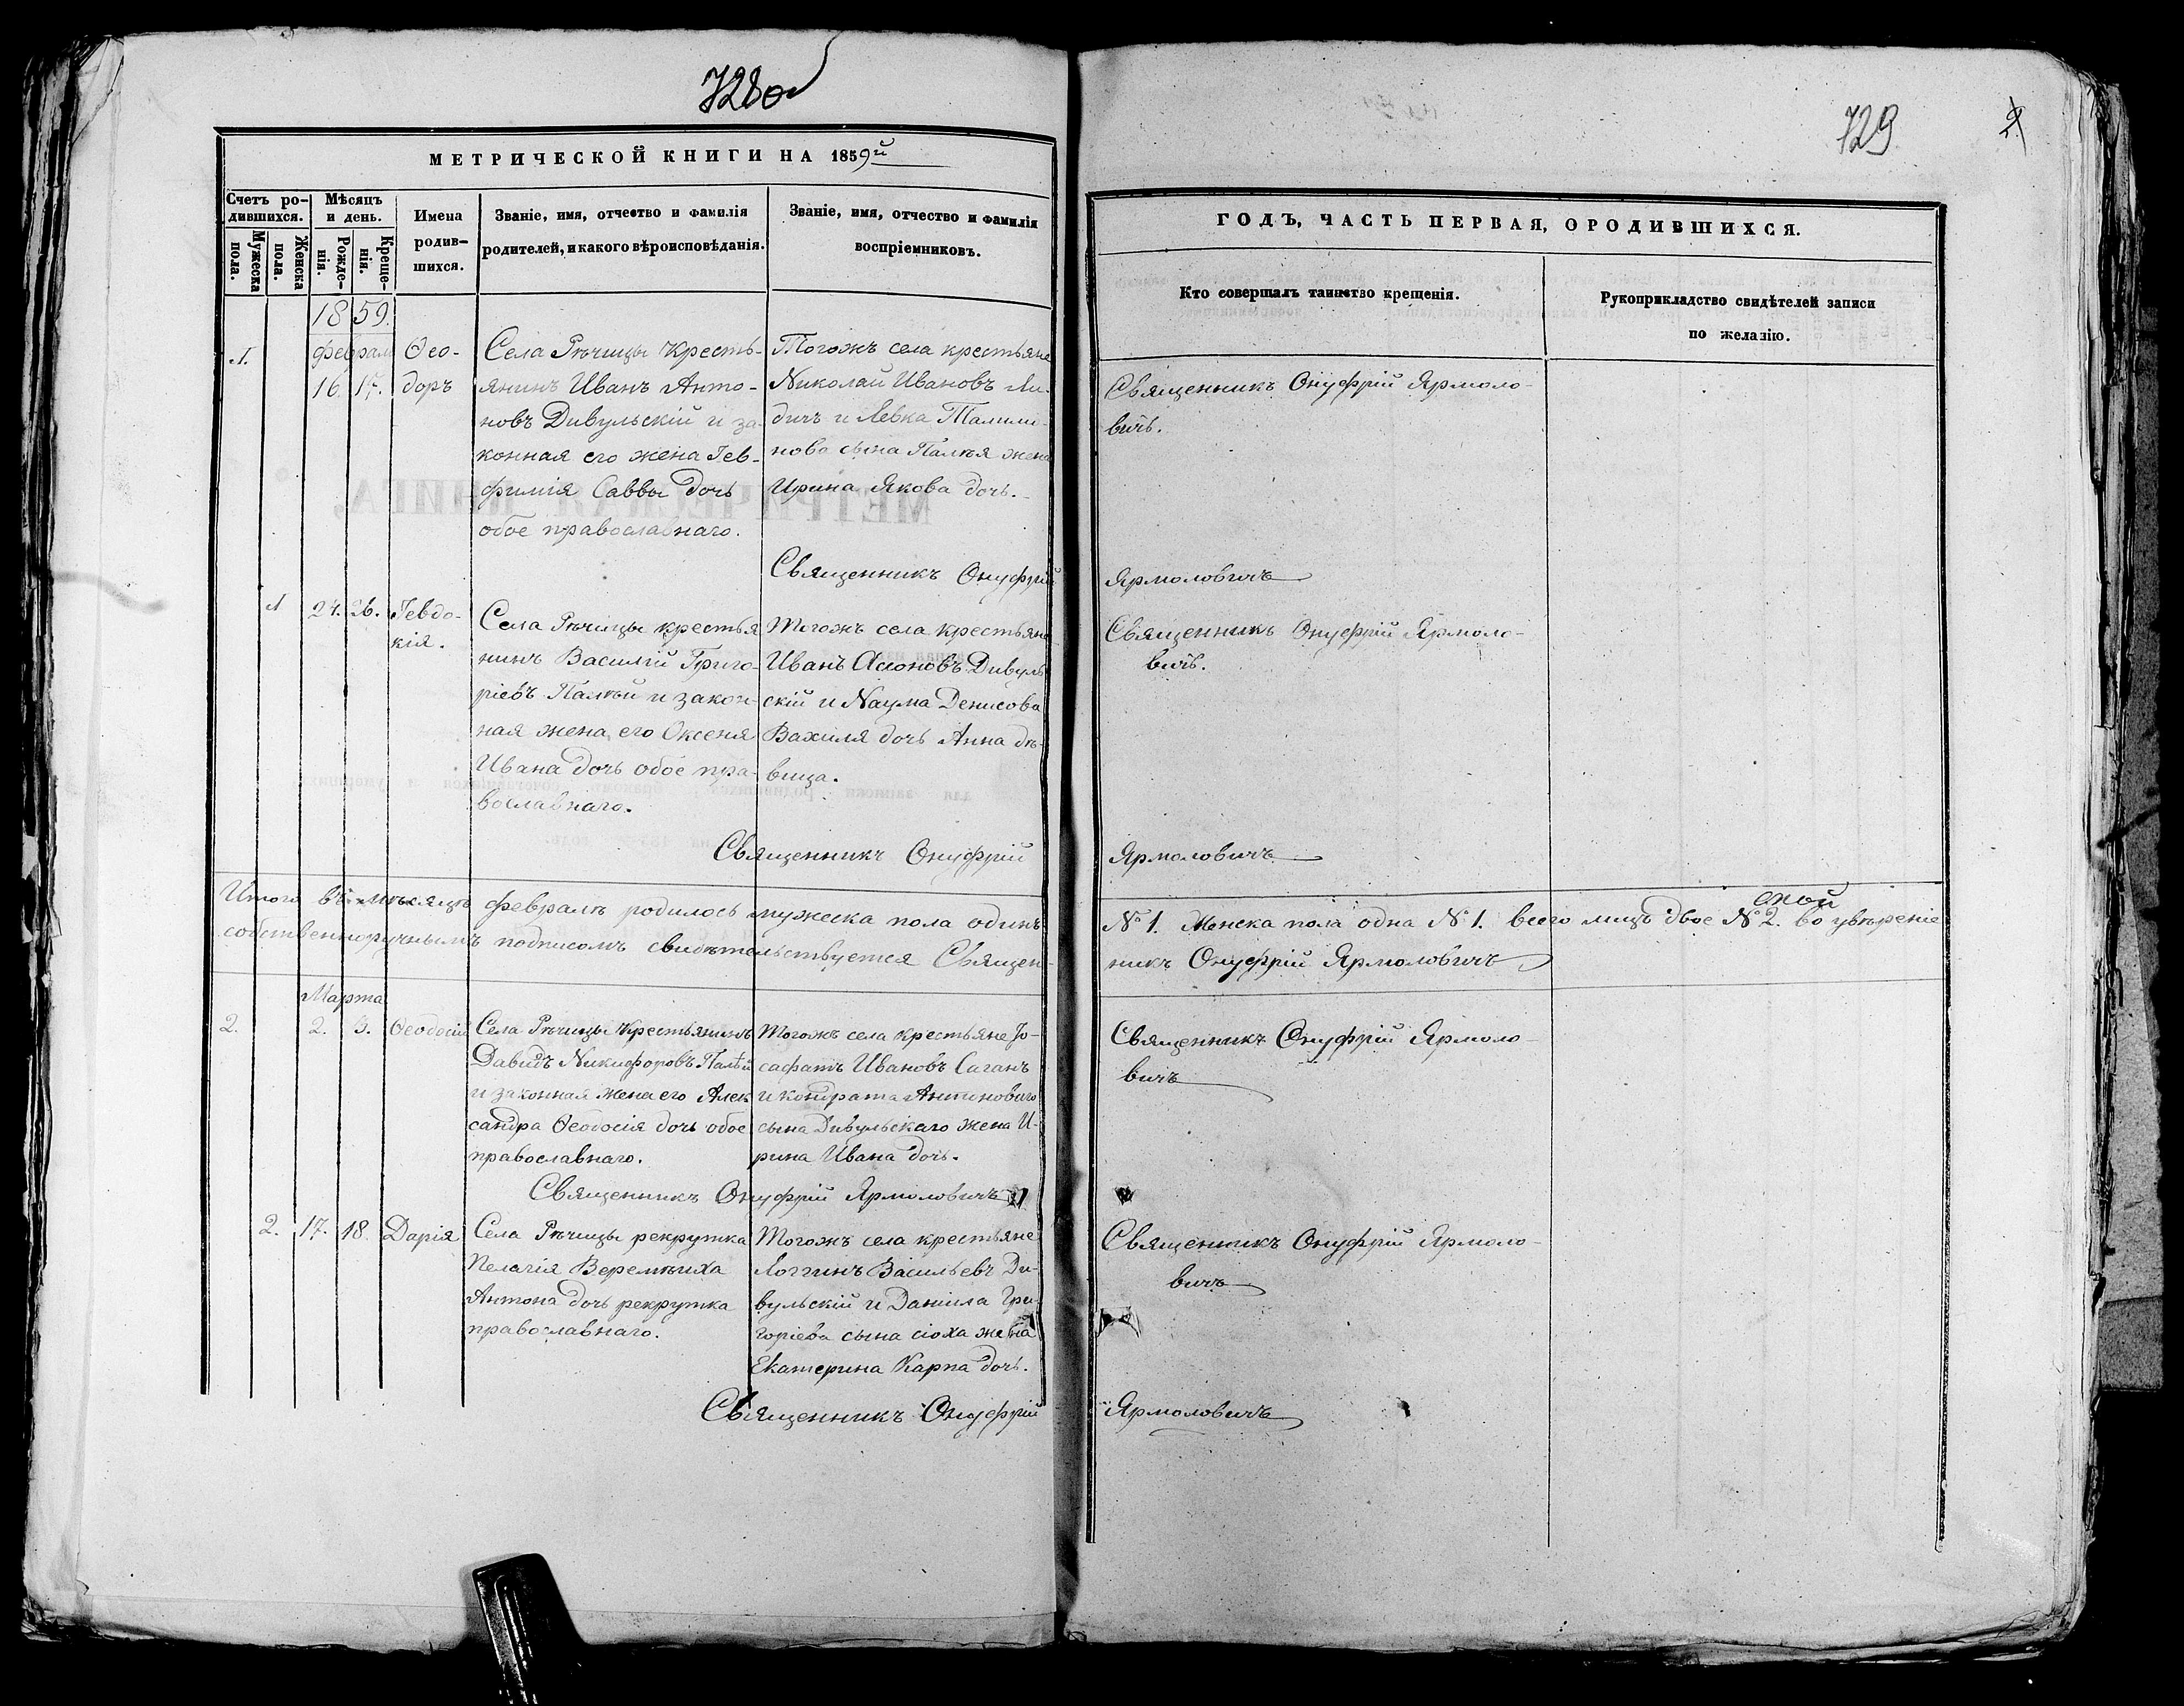 728об
МЕТРИЧЕСКОЙ КНИГИ НА 1859й
Счетъ ро-
дившихся.
Мѣсяцъ
и день.
Мужеска
пола.
Женска
пола.
Рожде-
нія.
Креще-
нія.
Имена
родив-
шихся.
Званіе, имя, отчество и фамилія
родителей, и какого вѣроисповѣданія.
Званіе, имя, отчество и фамилія
воспріемниковъ.
1859.
февраля
1.
16. 17.
Ѳео-
доръ
Села Рѣчицы кресть-
янинъ Иванъ Анто-
новъ Дивульскій и за-
конная его жена Іев-
фимія Саввы дочь
обое православнаго.
Тогожъ села крестьяне
Николай Ивановъ Ли-
дичъ и Левка
нова сына Палѣя жена
Ирина Якова дочь.
Священникъ Онуфрій
1
24. 26.
Іевдо-
кія.
Села Рѣчицы крестья
нинъ Василій Григо-
ріевъ Палѣй и закон-
ная жена его Оксеня
Ивана дочь обое пра-
вославнаго.
Тогожъ села крестьяне
Иванъ Дивуль
скій и Наума Денисова
Вахиля дочь Анна дѣ-
вица.
Священникъ Онуфрій
Итого въ мѣсяцѣ февралѣ родилось мужеска пола одинъ
собственноручнымъ подписомъ свидѣтельствуется Священ-
Марта
2.
2. 3.
Ѳеодосій
Села Рѣчицы крестьянинъ
Давидъ Никифоровъ Палѣй
и законная жена его Алек
сандра Ѳеодосія дочь обое
православнаго.
Тогожъ села крестьяне Іо-
сафатъ Ивановъ Саганъ
и кондрата Антонового
сына Дивульскаго жена И-
рина Ивана дочь.
Священникъ Онуфрій Ярмоловичъ
2.
17. 18.
Дарія
Села Рѣчицы рекрутка
Пелагія Веремѣиха
Антона дочь рекрутка
православнаго.
Тогожъ села крестьяне
Логгинъ Васильевъ Ди-
вульскій и Даніила Гри-
горіева сына сіоха жена
Екатерина Карпа дочь.
Священникъ Онуфрій
729
ГОДЪ, ЧАСТЬ ПЕРВАЯ, ОРОДИВШИХСЯ.
Кто совершалъ таинство крещенія.
Рукоприкладство свидѣтелей записи
по желанію.
Священникъ Онуфрій Ярмоло-
вичъ.
Ярмоловичъ
Священникъ Онуфрій Ярмоло-
вичъ.
Ярмоловичъ
№ 1. Женска пола одна № 1. всего лицъ двое № 2. во увѣреніе
никъ Онуфрій Ярмоловичъ
Священникъ Онуфрій Ярмоло-
вичъ
Священникъ Онуфрій Ярмоло-
вичъ
Ярмоловичъ